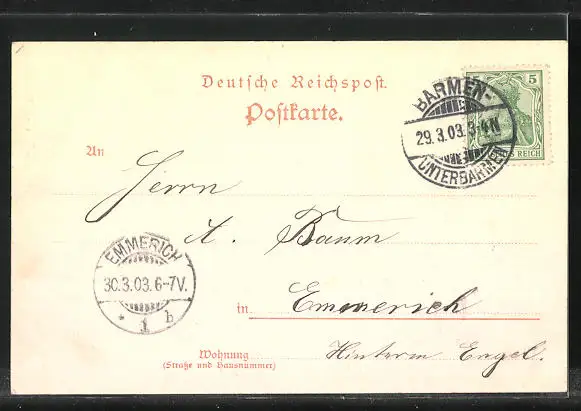 Deutsche Reichspost.
Postkarte.
5
BARMEN-
29.3.03. 3-4N
UNTERBARMEN
S REICH
An
Herrn
A. Baum
EMMERICH
30.3.03. 6-7V.
* 1 b
in Emmerich
Wohnung
(Straße und Hausnummer)
Hinterm Engel.